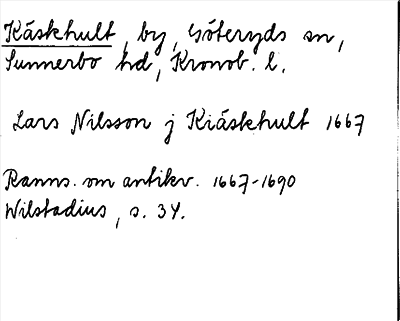 Käskhult, by, Göteryds sn,
Sunnerbo hd, Kronob. l.
Lars Nilsson j Kiäskhult 1667
Ranns. om antikv. 1667-1690
Wilstadius, s. 34.